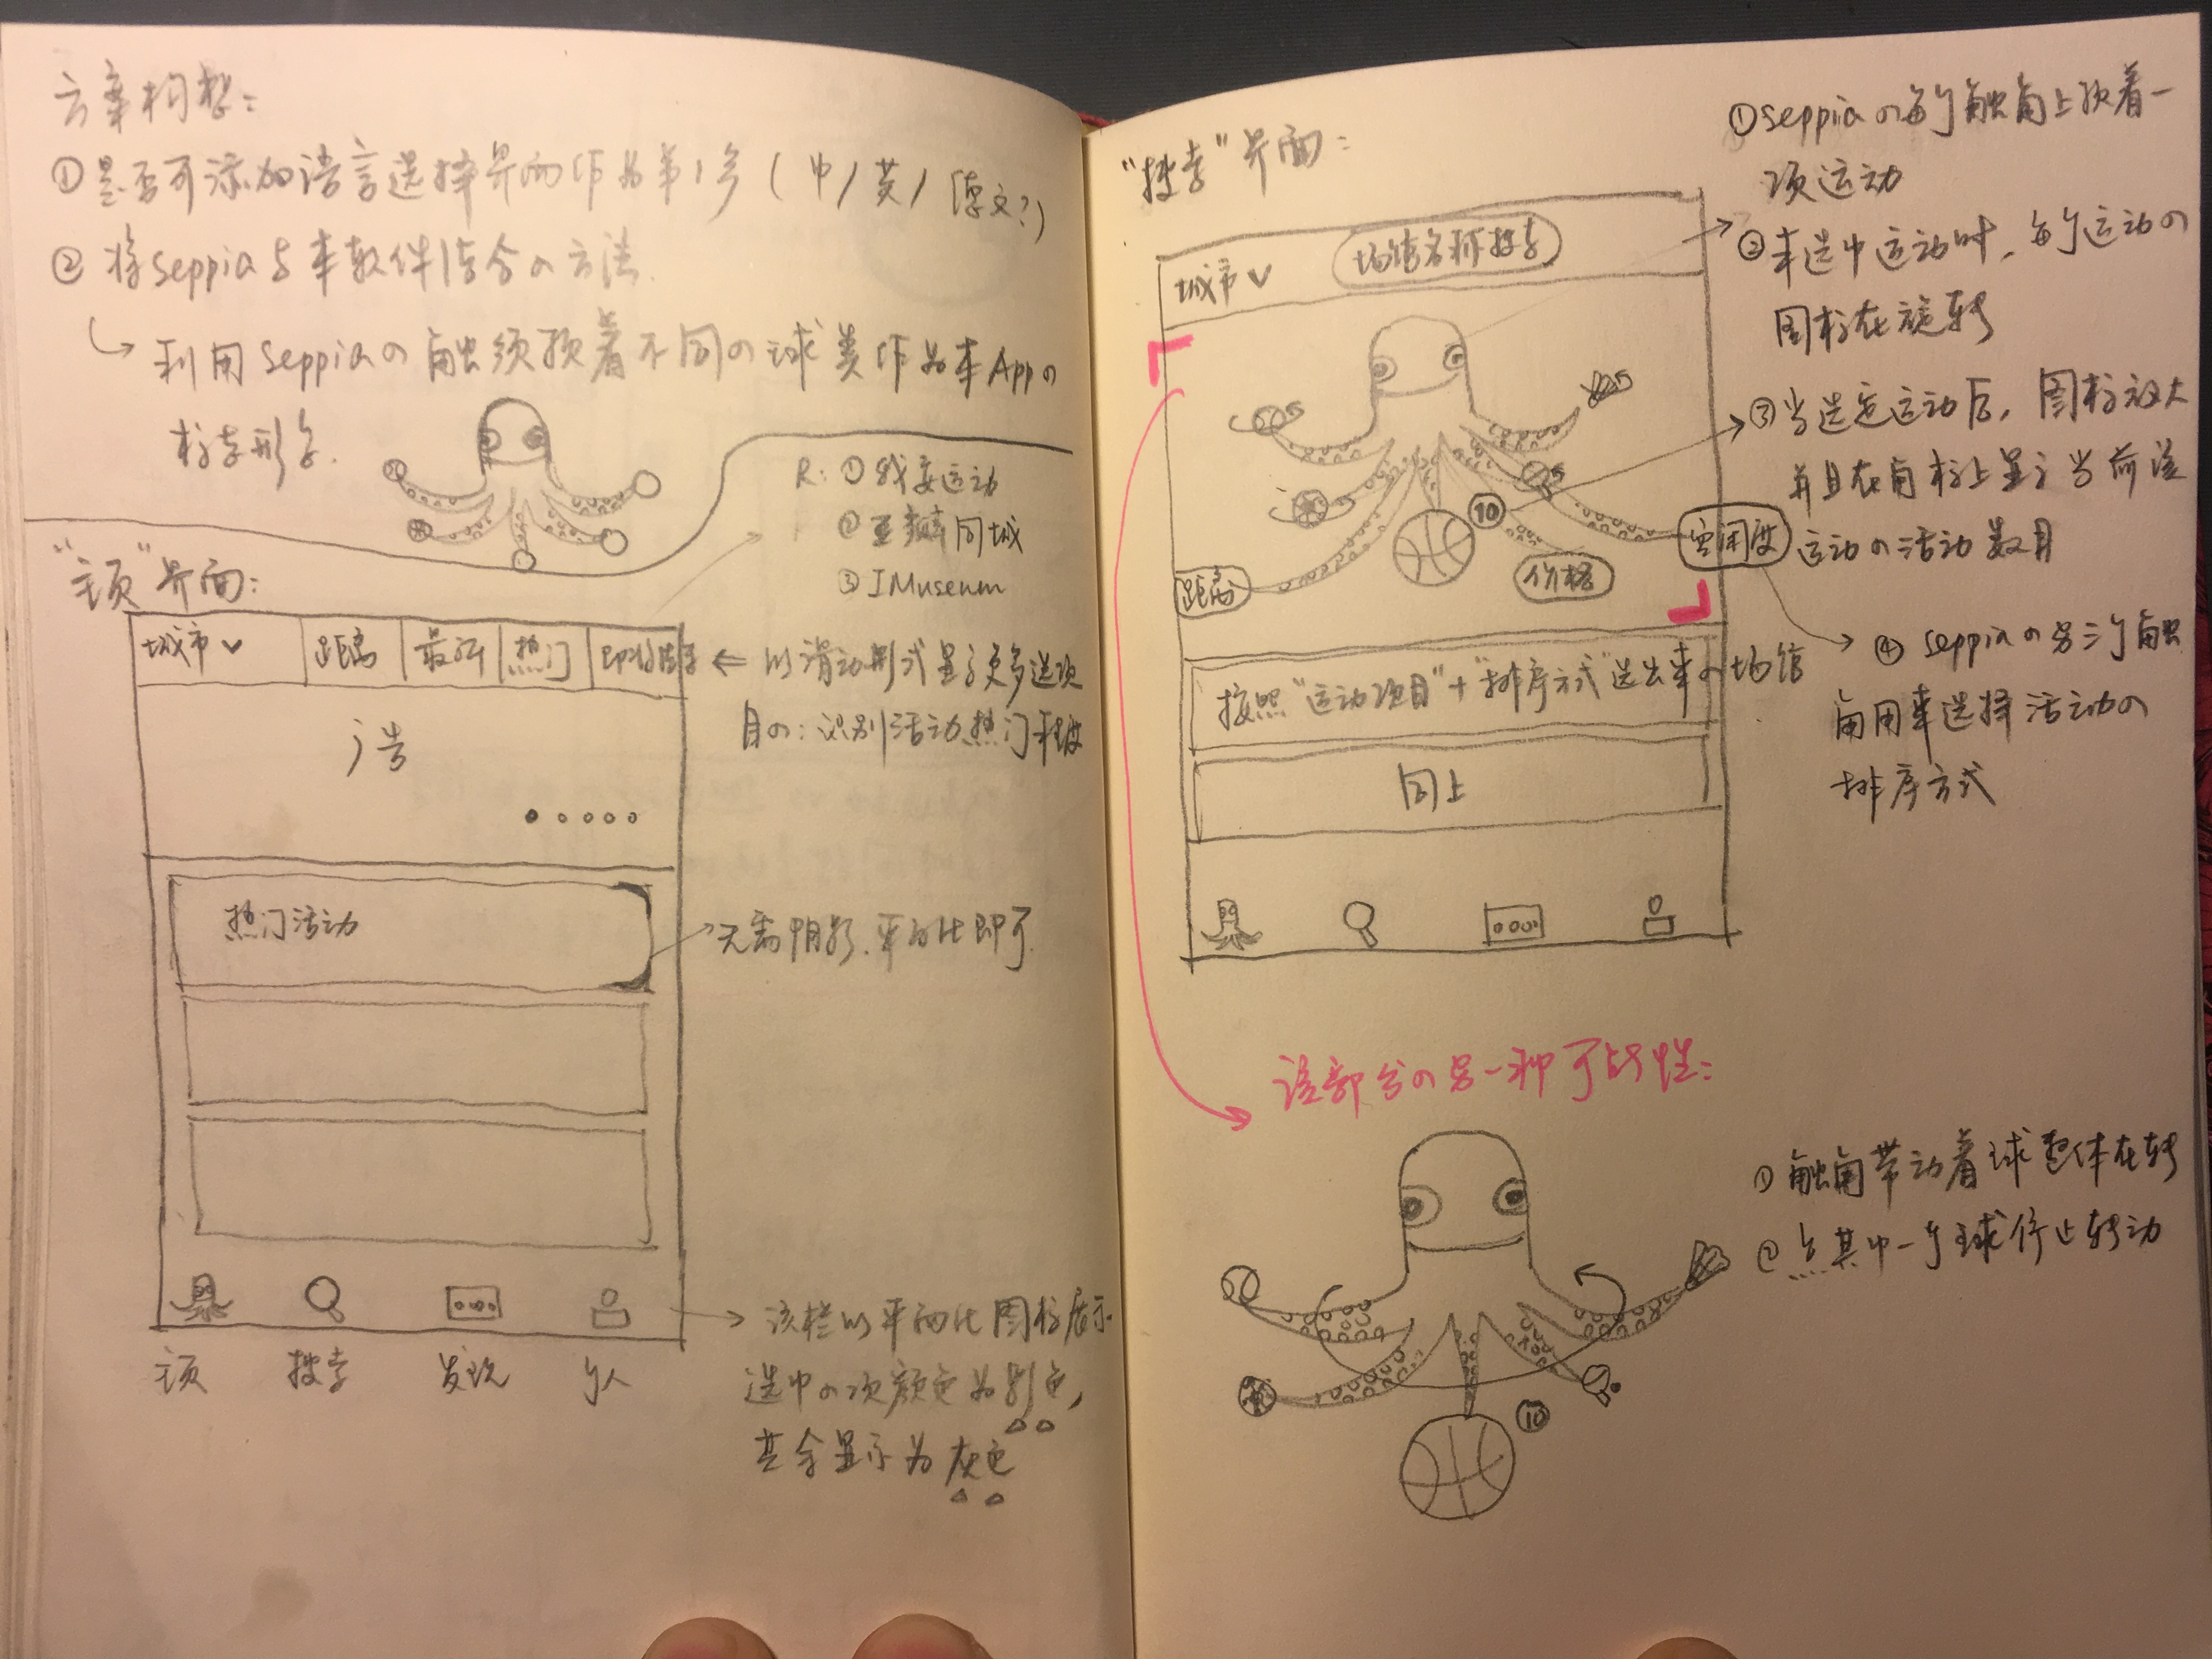 方案构想：
①是否可添加语言选择界面作为第1步（中/英/德文？）
②将seppia与本软件结合の方法.
利用seppiaの触须顶着不同の球类作为本Appの
标志形象.
R：①我要运动
②豆瓣同城
③IMuseum
“主页”界面：
城市∨ 距离 最新 热门 即将结束
⇐ 以滑动形式显示更多选项
目の：识别活动热门程度
广告
热门活动
无需阴影.平面化即可.
主页 搜索 发现 个人
该栏以平面化图标展示.
选中の项颜色为彩色,
其余显示为灰色
“搜索”界面：
城市∨ 场馆名称搜索
10
距离 价格 空闲度
按照“运动项目”+“排序方式”选出来の场馆
同上
①seppiaの每个触角上顶着一
项运动
②未选中运动时，每个运动の
图标在旋转
③当选定运动后，图标放大
并且在角标上显示当前该
运动の活动数目
④seppiaの另三个触
角用来选择活动の
排序方式
该部分の另一种可能性：
①触角带动着球整体在转
②点其中一个球停止转动
10